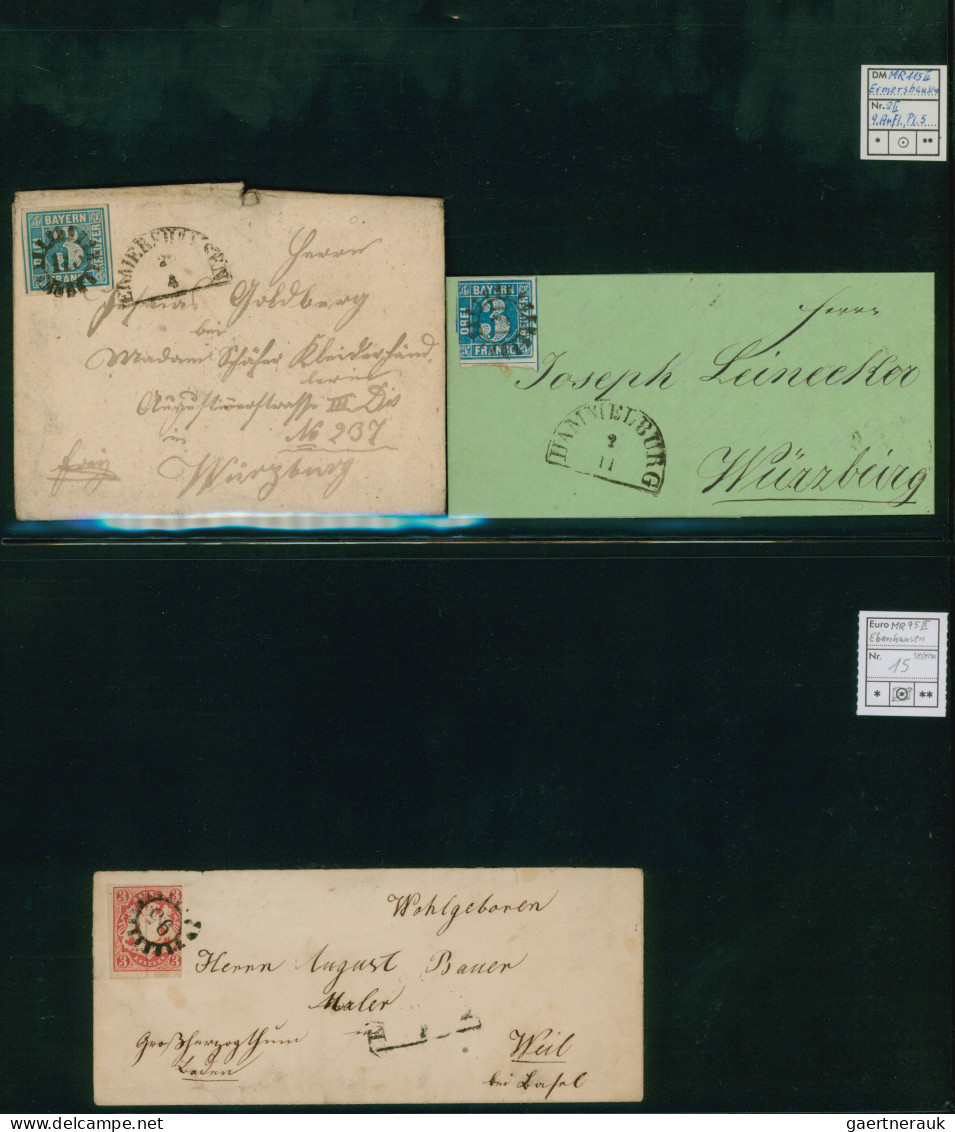 DM MR 115 II
Ermershausen
Nr. 2 II
4. Aufl., Pl. 5
* ⊙ **
BAYERN
DREI
3
KREUZER
FRANCO
2
4
Herrn
Goldberg
bei
Madame Schäfer Kleiderhänd
lerin
Augustinerstrasse III Dis
in
No 237
Würzburg
BAYERN
DREI
3
KREUZER
FRANCO
Herrn
Joseph Leinecker
HAMMELBURG
2
11
Würzburg
Euro MR 95 II
Ebenhausen
Nr. 15 selten
* **
3 3
95
3 3
Wohlgeboren
Herrn August Bauer
Maler
in
Großherzogthum
Baden
Weil
bei Basel
gaertnerauk